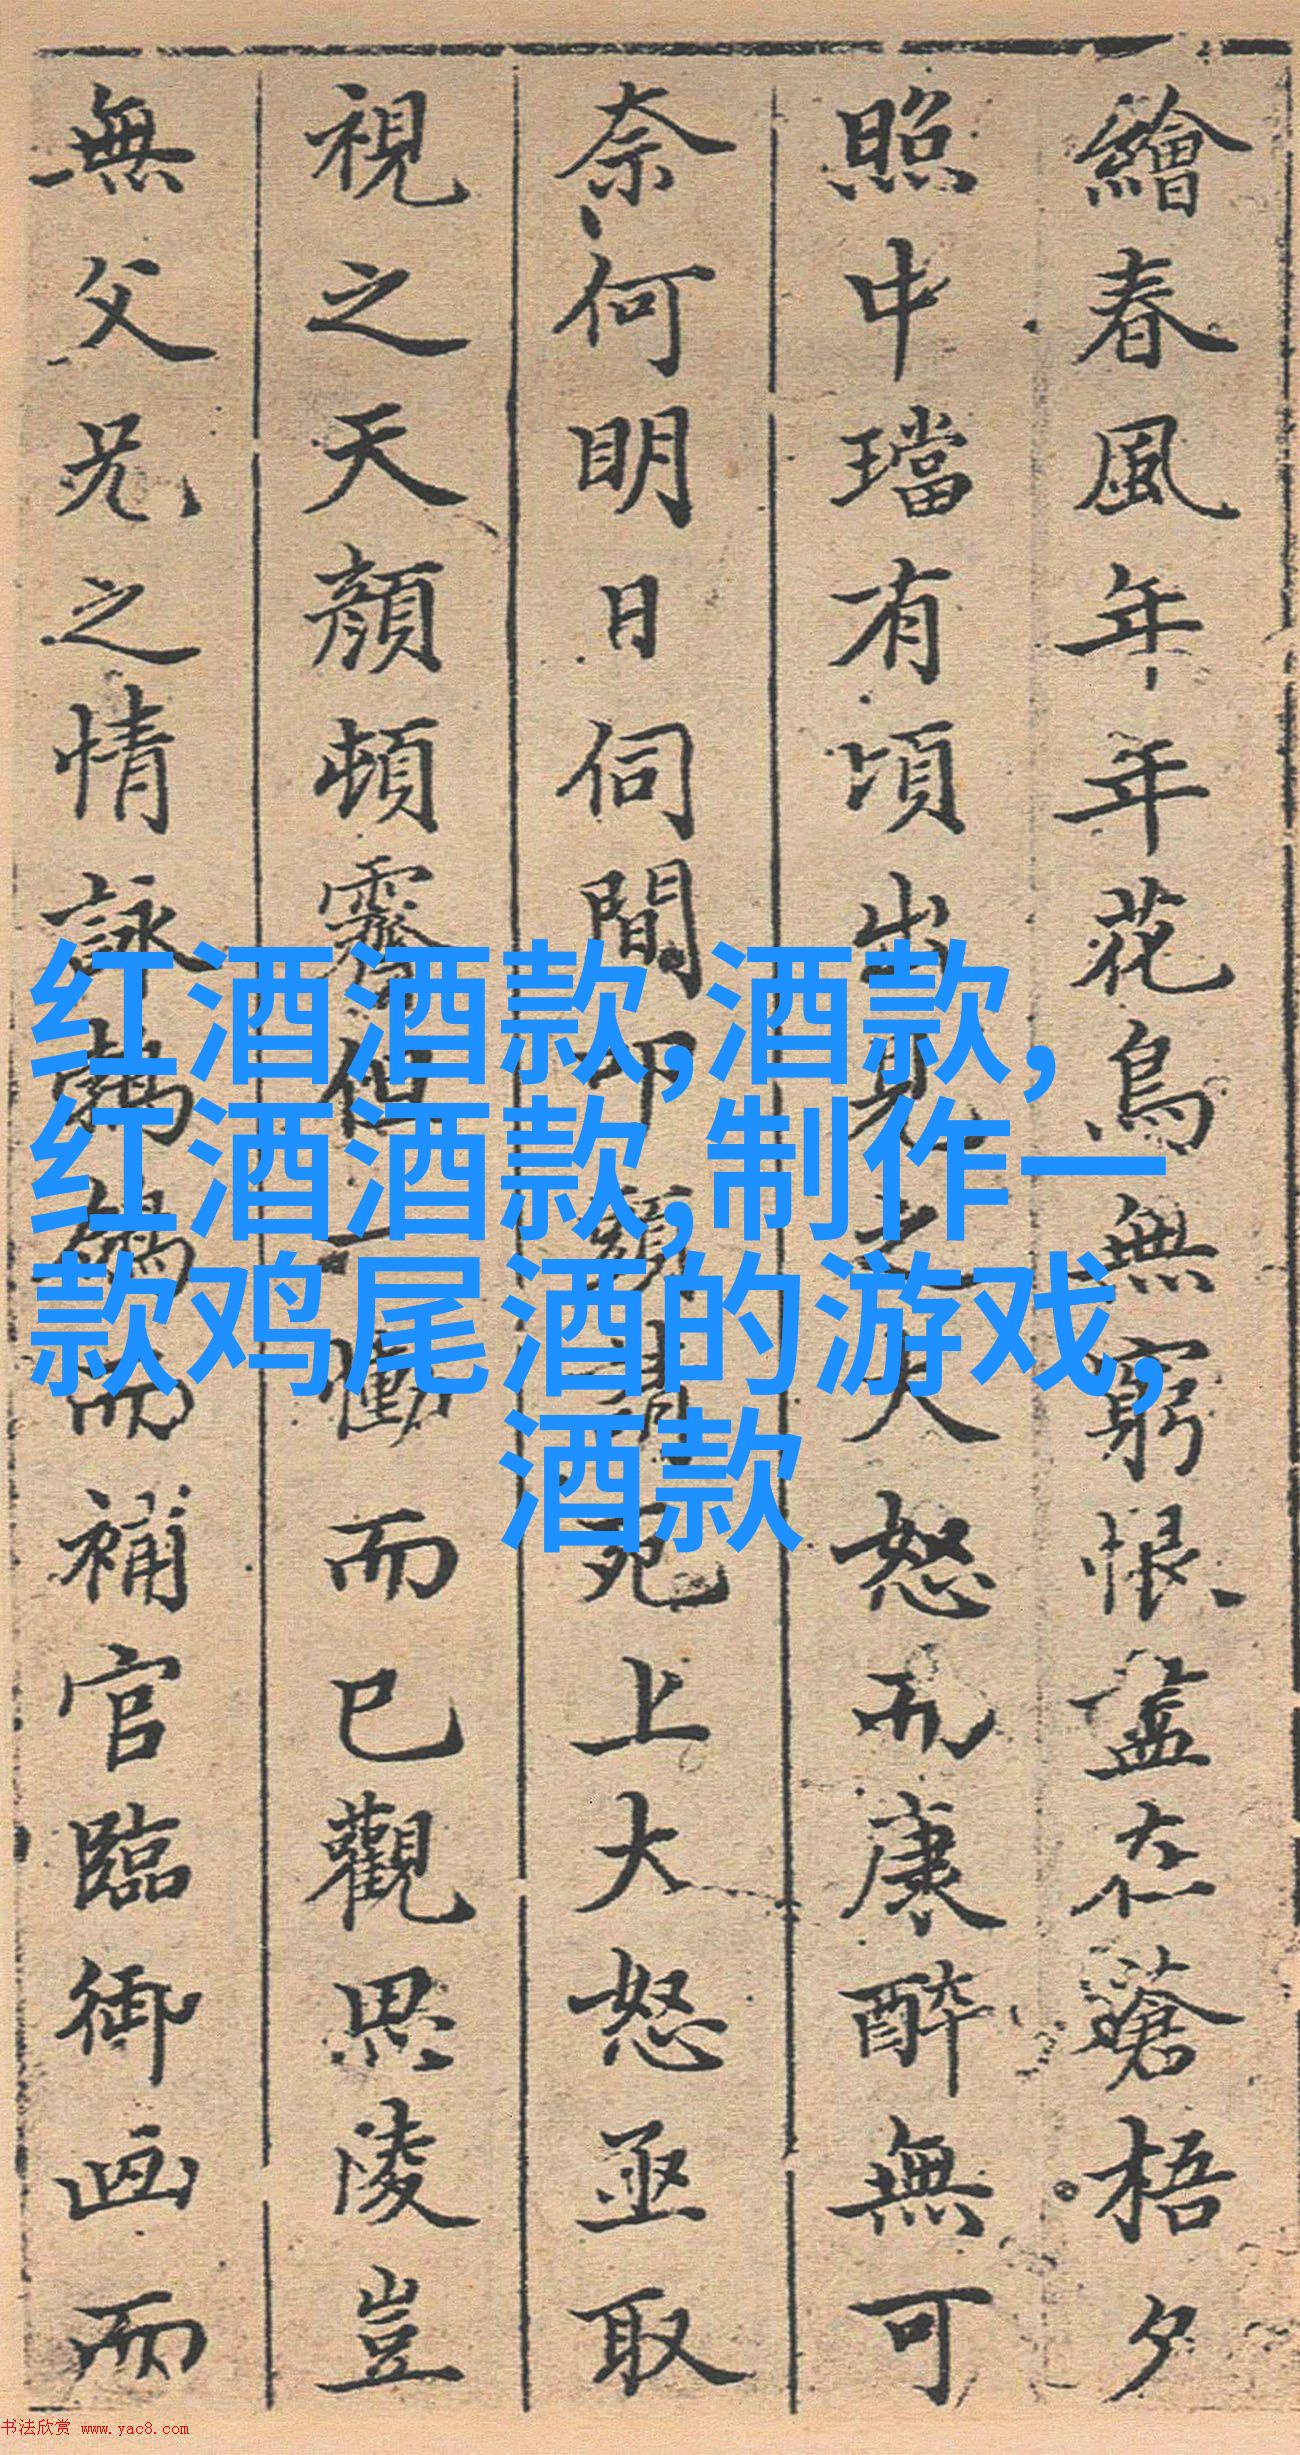 繪春風年年花鳥無窮恨盡在蒼梧夕
照中璫有頃出見之大怒而康醉無可
奈何明日伺間叩頭請死上大怒亟取
視之天顔頓霽但一慟而已觀思陵豈
無父兄之情詠鶺鴒而補官臨御画而
红酒酒款,酒款,
红酒酒款,制作一
款鸡尾酒的游戏,
酒款
书法欣赏 www.yac8.com